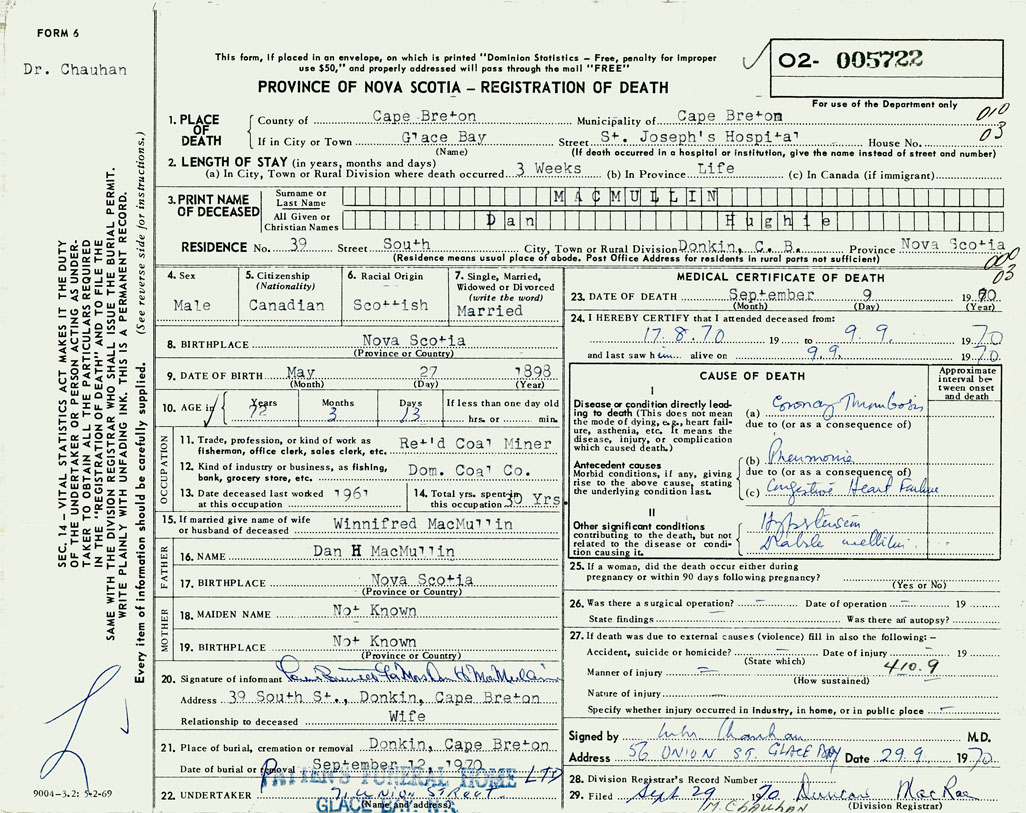 FORM 6
Dr. Chauhan
This form, if placed in an envelope, on which is printed "Dominion Statistics – Free, penalty for improper
use $50," and properly addressed will pass through the mail "FREE"
O2- 005722
For use of the Department only
PROVINCE OF NOVA SCOTIA – REGISTRATION OF DEATH
010
03
1. PLACE OF DEATH
County of Cape Breton Municipality of Cape Breton
If in City or Town Glace Bay Street St. Joseph's Hospital House No.
(Name) (If death occurred in a hospital or institution, give the name instead of street and number)
2. LENGTH OF STAY (in years, months and days)
(a) In City, Town or Rural Division where death occurred 3 Weeks (b) In Province Life (c) In Canada (if immigrant)
3. PRINT NAME OF DECEASED
Surname or Last Name MACMULLIN
All Given or Christian Names Dan Hughie
RESIDENCE No. 39 Street South City, Town or Rural Division Donkin, C. B. Province Nova Scotia
(Residence means usual place of abode. Post Office Address for residents in rural parts not sufficient)
000
03
4. Sex
Male
5. Citizenship
(Nationality)
Canadian
6. Racial Origin
Scottish
7. Single, Married,
Widowed or Divorced
(write the word)
Married
8. BIRTHPLACE Nova Scotia
(Province or Country)
9. DATE OF BIRTH May 27 1898
(Month) (Day) (Year)
10. AGE in Years Months Days If less than one day old
72 3 13 hrs. or min.
OCCUPATION
11. Trade, profession, or kind of work as
fisherman, office clerk, sales clerk, etc. Ret'd Coal Miner
12. Kind of industry or business, as fishing,
bank, grocery store, etc. Dom. Coal Co.
13. Date deceased last worked
at this occupation 1961
14. Total yrs. spent in
this occupation 30 Yrs.
15. If married give name of wife
or husband of deceased Winnifred MacMullin
FATHER
16. NAME Dan H MacMullin
17. BIRTHPLACE Nova Scotia
(Province or Country)
MOTHER
18. MAIDEN NAME Not Known
19. BIRTHPLACE Not Known
(Province or Country)
20. Signature of informant Mrs Dan H MacMullin
Address 39 South St., Donkin, Cape Breton
Relationship to deceased Wife
21. Place of burial, cremation or removal Donkin, Cape Breton
Date of burial or removal September 12, 1970
PATTEN'S FUNERAL HOME LTD
22. UNDERTAKER 71 UNION STREET
(Name and address)
GLACE BAY, N.S.
MEDICAL CERTIFICATE OF DEATH
23. DATE OF DEATH September 9 1970
(Month) (Day) (Year)
24. I HEREBY CERTIFY that I attended deceased from:
17.8.70 19 to 9.9. 1970
and last saw him alive on 9.9. 1970
CAUSE OF DEATH
Approximate
interval be-
tween onset
and death
I
Disease or condition directly lead-
ing to death (This does not mean
the mode of dying, e.g., heart fail-
ure, asthenia, etc. It means the
disease, injury, or complication
which caused death.)
(a) Coronary Thrombosis
due to (or as a consequence of)
Antecedent causes
Morbid conditions, if any, giving
rise to the above cause, stating
the underlying condition last.
(b) Pneumonia
due to (or as a consequence of)
(c) Congestive Heart Failure
II
Other significant conditions
contributing to the death, but not
related to the disease or condi-
tion causing it.
Hypertension
Diabetes mellitus
25. If a woman, did the death occur either during
pregnancy or within 90 days following pregnancy?
(Yes or No)
26. Was there a surgical operation? – Date of operation – 19
State findings Was there an autopsy?
27. If death was due to external causes (violence) fill in also the following: –
Accident, suicide or homicide? – Date of injury – 19
(State which)
410.9
Manner of injury –
(How sustained)
Nature of injury –
Specify whether injury occurred in industry, in home, or in public place –
Signed by Chauhan M.D.
Address 56 UNION ST. GLACE BAY Date 29.9. 1970
28. Division Registrar's Record Number
29. Filed Sept 29 1970 Duncan MacRae
M. CHAUHAN (Division Registrar)
SEC. 14 – VITAL STATISTICS ACT MAKES IT THE DUTY
OF THE UNDERTAKER OR PERSON ACTING AS UNDER-
TAKER TO OBTAIN ALL THE PARTICULARS REQUIRED
IN THE "REGISTRATION OF DEATH" AND TO FILE THE
SAME WITH THE DIVISION REGISTRAR WHO SHALL ISSUE THE BURIAL PERMIT.
WRITE PLAINLY WITH UNFADING INK. THIS IS A PERMANENT RECORD.
Every item of information should be carefully supplied. (See reverse side for instructions.)
9004-3.2: 5-2-69